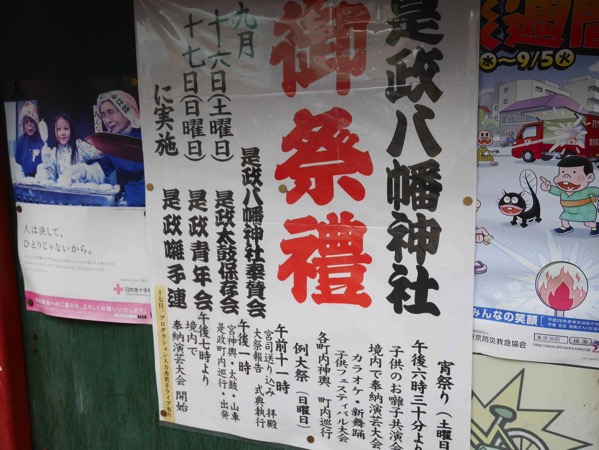 是政八幡神社
御祭禮
九月
十六日(土曜日)
十七日(日曜日)
に実施
是政八幡神社奉賛会
是政太鼓保存会
是政青年会
是政囃子連
宵祭り(土曜日)
午後六時三十分より
子供のお囃子共演会
境内で奉納演芸大会
カラオケ・新舞踊
子供フェスティバル大会
各町内神輿、町内巡行
例大祭(日曜日)
午前十一時
宮司送り込み 拝殿
大祭報告 式典執行
午後一時
宮神輿・太鼓・山車
是政町内巡行・出発
午後七時より
境内で
奉納演芸大会 開始
人は決して、
ひとりじゃないから。
日本赤十字社
週間
水〜9/5水
みんなの笑顔
東京防災救急協会
東京消防
検索